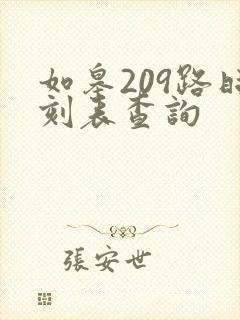 如皋209路時
刻表查詢
張安世